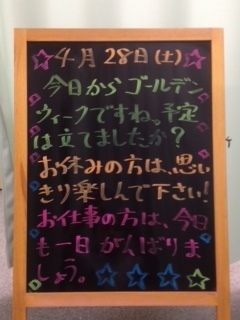 4月28日(土)
今日からゴールデン
ウィークですね。予定
は立てましたか？
お休みの方は、思い
きり楽しんで下さい!
お仕事の方は、今日
も一日がんばりま
しょう。